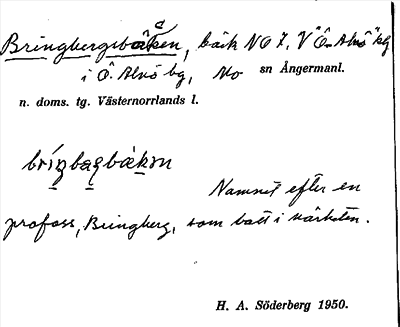 Bringbergsbäcken, bäck NO 7, V "Ö. Alnö" klg
i Ö. Alnö bg, Mo sn Ångermanl.
n. doms. tg. Västernorrlands l.
Namnet efter en
profoss, Bringberg, som bott i närheten.
H. A. Söderberg 1950.